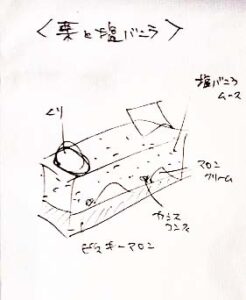 〈栗と塩バニラ〉
くり
塩バニラ
ムース
マロン
クリーム
カシス
コンフィ
ビスキーマロン